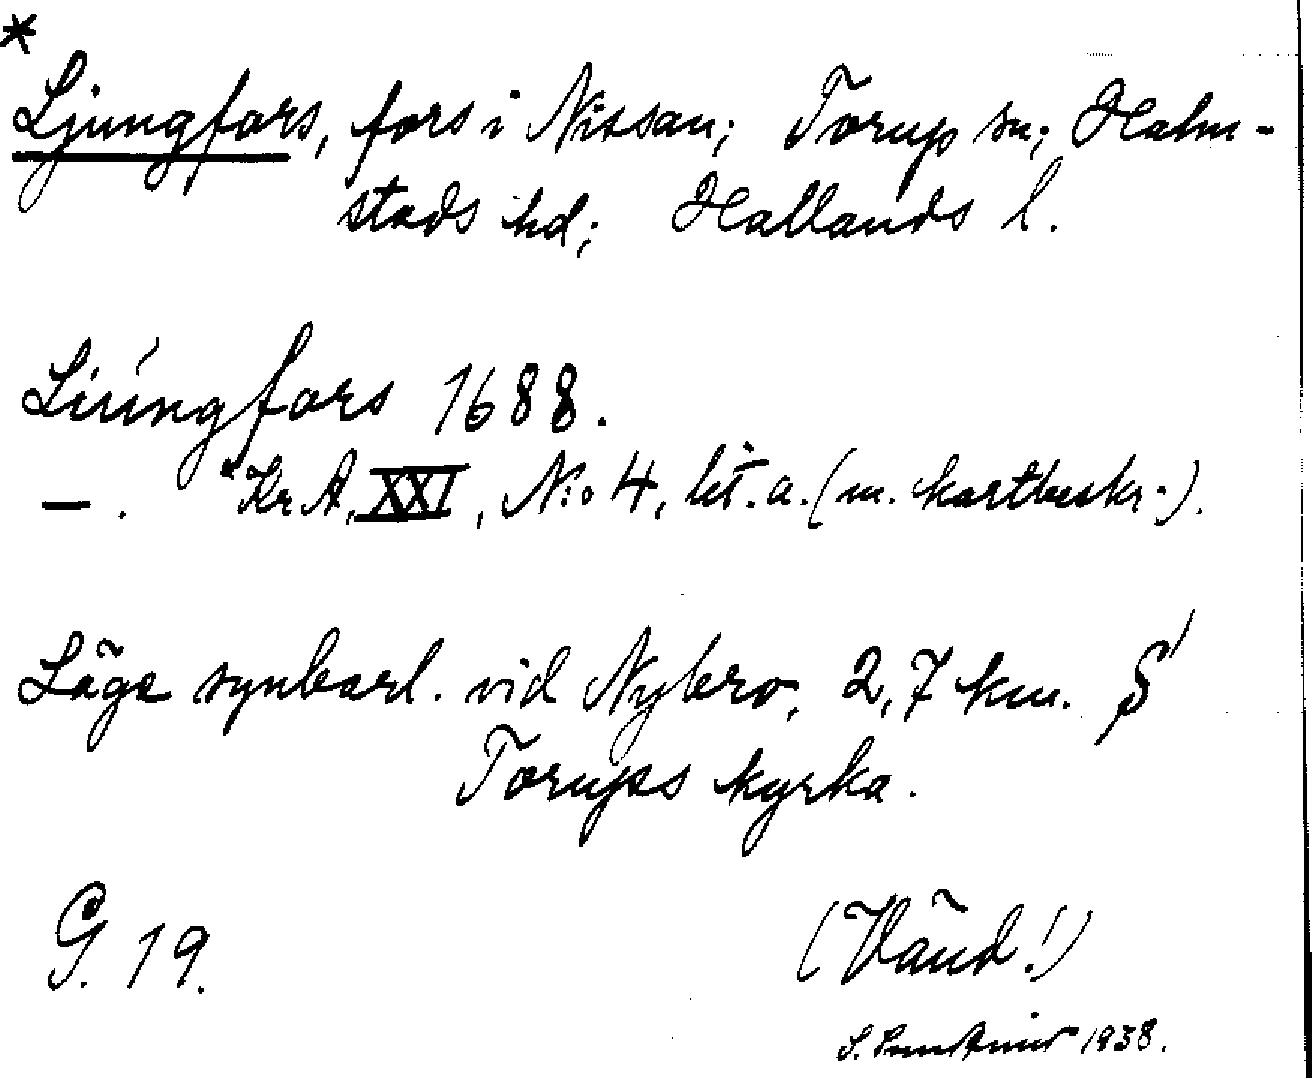 *
Ljungfors, fors i Nissan; Torup sn; Halm-
stads hd; Hallands l.
Liúngfors 1688.
— . KrA, XXI, N:o 4, lit. a. (m. kartbeskr.).
Läge synbarl. vid Nybro, 2,7 km. S
Torups kyrka.
G. 19.
(Vänd!)
S. 1938.